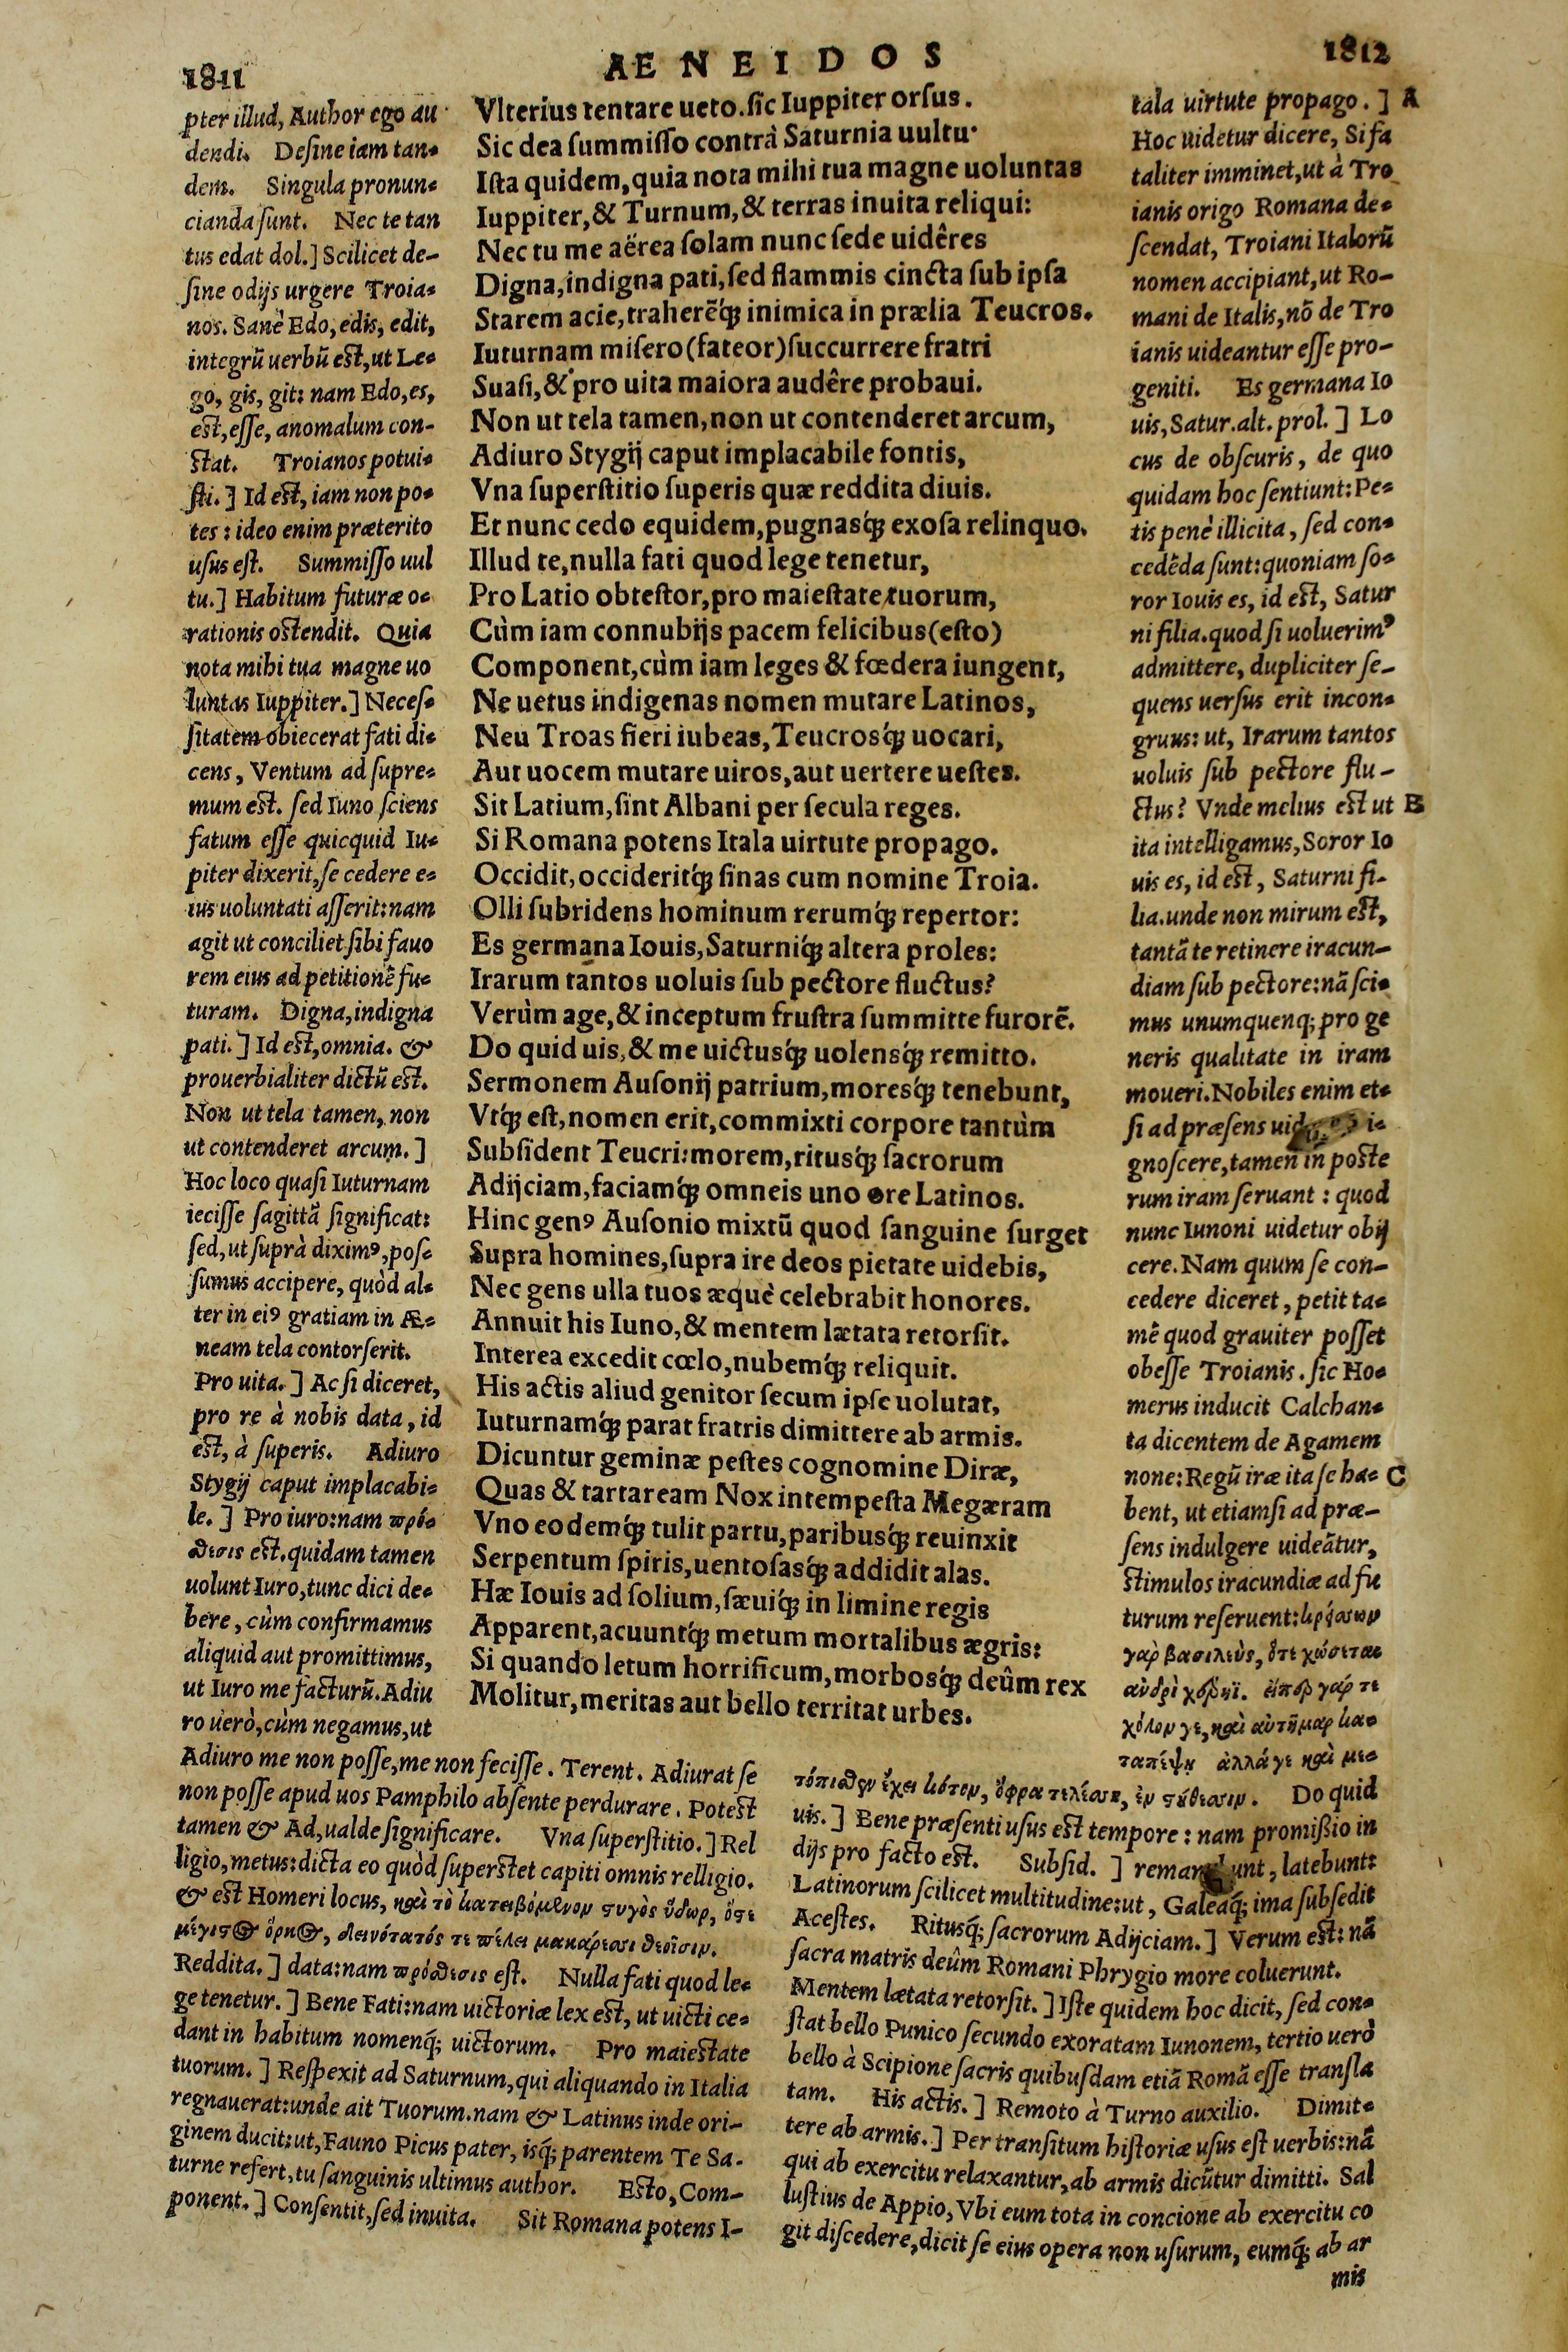 1811
AENEIDOS
1812
pter illud, Author ego au
dendi. Desine iam tan-
dem. Singula pronun-
cianda sunt. Nec te tan
tus edat dol.] Scilicet de-
sine odijs urgere Troia-
nos. Sanè Edo, edis, edit,
integrũ uerbũ est, ut Le-
go, gis, git: nam Edo, es,
est, esse, anomalum con-
stat. Troianos potui-
sti.] Id est, iam non po-
tes: ideo enim præterito
usus est. Summisso uul
tu.] Habitum futuræ o-
rationis ostendit. Quia
nota mihi tua magne uo
luntas Iuppiter.] Neces-
sitatem obiecerat fati di-
cens, Ventum ad supre-
mum est. sed Iuno sciens
fatum esse quicquid Iu-
piter dixerit, se cedere e-
ius uoluntati asserit: nam
agit ut conciliet sibi fauo
rem eius ad petitionẽ fu-
turam. Digna, indigna
pati.] Id est, omnia. &
prouerbialiter dictũ est.
Non ut tela tamen, non
ut contenderet arcum.]
Hoc loco quasi Iuturnam
iecisse sagittã significat:
sed, ut suprà diximꝰ, pos-
sumus accipere, quòd al-
ter in eiꝰ gratiam in Æ-
neam tela contorserit.
Pro uita.] Ac si diceret,
pro re à nobis data, id
est, à superis. Adiuro
Stygij caput implacabi-
le.] Pro iuro: nam πρό-
θεσις est. quidam tamen
uolunt Iuro, tunc dici de-
bere, cùm confirmamus
aliquid aut promittimus,
ut Iuro me facturũ. Adiu
ro uerò, cùm negamus, ut
Vlterius tentare ueto. sic Iuppiter orsus.
Sic dea summisso contrà Saturnia uultu.
Ista quidem, quia nota mihi tua magne uoluntas
Iuppiter, & Turnum, & terras inuita reliqui:
Nec tu me aërea solam nunc sede uidêres
Digna, indigna pati, sed flammis cincta sub ipsa
Starem acie, traherẽq́; inimica in prælia Teucros.
Iuturnam misero (fateor) succurrere fratri
Suasi, & pro uita maiora audêre probaui.
Non ut tela tamen, non ut contenderet arcum,
Adiuro Stygij caput implacabile fontis,
Vna superstitio superis quæ reddita diuis.
Et nunc cedo equidem, pugnasq́; exosa relinquo.
Illud te, nulla fati quod lege tenetur,
Pro Latio obtestor, pro maiestate tuorum,
Cùm iam connubijs pacem felicibus (esto)
Component, cùm iam leges & fœdera iungent,
Ne uetus indigenas nomen mutare Latinos,
Neu Troas fieri iubeas, Teucrosq́; uocari,
Aut uocem mutare uiros, aut uertere uestes.
Sit Latium, sint Albani per secula reges.
Si Romana potens Itala uirtute propago.
Occidit, occideritq́; sinas cum nomine Troia.
Olli subridens hominum rerumq́; repertor:
Es germana Iouis, Saturniq́; altera proles:
Irarum tantos uoluis sub pectore fluctus?
Verùm age, & inceptum frustra summitte furorẽ.
Do quid uis, & me uictusq́; uolensq́; remitto.
Sermonem Ausonij patrium, moresq́; tenebunt,
Vtq́; est, nomen erit, commixti corpore tantùm
Subsident Teucri: morem, ritusq́; sacrorum
Adijciam, faciamq́; omneis uno ore Latinos.
Hinc genꝰ Ausonio mixtũ quod sanguine surget
Supra homines, supra ire deos pietate uidebis,
Nec gens ulla tuos æquè celebrabit honores.
Annuit his Iuno, & mentem lætata retorsit.
Interea excedit cœlo, nubemq́; reliquit.
His actis aliud genitor secum ipse uolutat,
Iuturnamq́; parat fratris dimittere ab armis.
Dicuntur geminæ pestes cognomine Diræ,
Quas & tartaream Nox intempesta Megæram
Vno eodemq́; tulit partu, paribusq́; reuinxit
Serpentum spiris, uentosasq́; addidit alas.
Hæ Iouis ad solium, sæuiq́; in limine regis
Apparent, acuuntq́; metum mortalibus ægris:
Si quando letum horrificum, morbosq́; deûm rex
Molitur, meritas aut bello territat urbes.
tala uirtute propago.] A
Hoc uidetur dicere, Si fa
taliter imminet, ut à Tro
ianis origo Romana de-
scendat, Troiani Italorũ
nomen accipiant, ut Ro-
mani de Italis, nõ de Tro
ianis uideantur esse pro-
geniti. Es germana Io
uis, Satur. alt. prol.] Lo
cus de obscuris, de quo
quidam hoc sentiunt: Pe-
tis penè illicita, sed con-
cedẽda sunt: quoniam so-
ror Iouis es, id est, Satur
ni filia. quod si uoluerimꝰ
admittere, dupliciter se-
quens uersus erit incon-
gruus: ut, Irarum tantos
uoluis sub pectore flu-
ctus? Vnde melius est ut B
ita intelligamus, Soror Io
uis es, id est, Saturni fi-
lia. unde non mirum est,
tantã te retinere iracun-
diam sub pectore: nã sci-
mus unumquenq; pro ge
neris qualitate in iram
moueri. Nobiles enim et-
si ad præsens i-
gnoscere, tamen in poste
rum iram seruant: quod
nunc Iunoni uidetur obij
cere. Nam quum se con-
cedere diceret, petit ta-
mẽ quod grauiter posset
obesse Troianis. sic Ho-
merus inducit Calchan-
ta dicentem de Agamem
none: Regũ iræ ita se ha- C
bent, ut etiamsi ad præ-
sens indulgere uideãtur,
stimulos iracundiæ ad fu
turum reseruent: κρείσσων
γὰρ βασιλεὺς, ὅτε χώσεται
ἀνδρὶ χέρηϊ. εἴπερ γάρ τε
χόλον γε, καὶ αὐτῆμαρ κα-
ταπέψῃ ἀλλά γε καὶ με-
Adiuro me non posse, me non fecisse. Terent. Adiurat se
non posse apud uos Pamphilo absente perdurare. Potest
tamen & Ad, ualde significare. Vna superstitio.] Rel
ligio, metus: dicta eo quòd superstet capiti omnis relligio.
& est Homeri locus, καὶ τὸ κατειβόμενον στυγὸς ὕδωρ, ὅστε
μέγιστος ὅρκος, δεινότατός τε πέλει μακάρεσσι θεοῖσιν.
Reddita.] data: nam πρόθεσις est. Nulla fati quod le-
ge tenetur.] Bene Fati: nam uictoriæ lex est, ut uicti ce-
dant in habitum nomenq́; uictorum. Pro maiestate
tuorum.] Respexit ad Saturnum, qui aliquando in Italia
regnauerat: unde ait Tuorum. nam & Latinus inde ori-
ginem ducit: ut, Fauno Picus pater, isq́; parentem Te Sa-
turne refert, tu sanguinis ultimus author. Esto, Com-
ponent.] Consentit, sed inuita. Sit Romana potens I-
τόπισθεν ἔχει κότον, ὄφρα τελέσσῃ, ἐν στήθεσσιν. Do quid
uis.] Bene præsenti usus est tempore: nam promißio in
dijs pro facto est. Subsid.] remanebunt, latebunt:
Latinorum scilicet multitudine: ut, Galeaq́; ima subsedit
Acestes. Ritusq́; sacrorum Adijciam.] Verum est: nã
sacra matris deûm Romani Phrygio more coluerunt.
Mentem lætata retorsit.] Iste quidem hoc dicit, sed con-
stat bello Punico secundo exoratam Iunonem, tertio uerò
bello à Scipione sacris quibusdam etiã Romã esse transla
tam. His actis.] Remoto à Turno auxilio. Dimit-
tere ab armis.] Per transitum historiæ usus est uerbis: nã
qui ab exercitu relaxantur, ab armis dicũtur dimitti. Sal
lustius de Appio, Vbi eum tota in concione ab exercitu co
git discedere, dicit se eius opera non usurum, eumq́; ab ar
mis